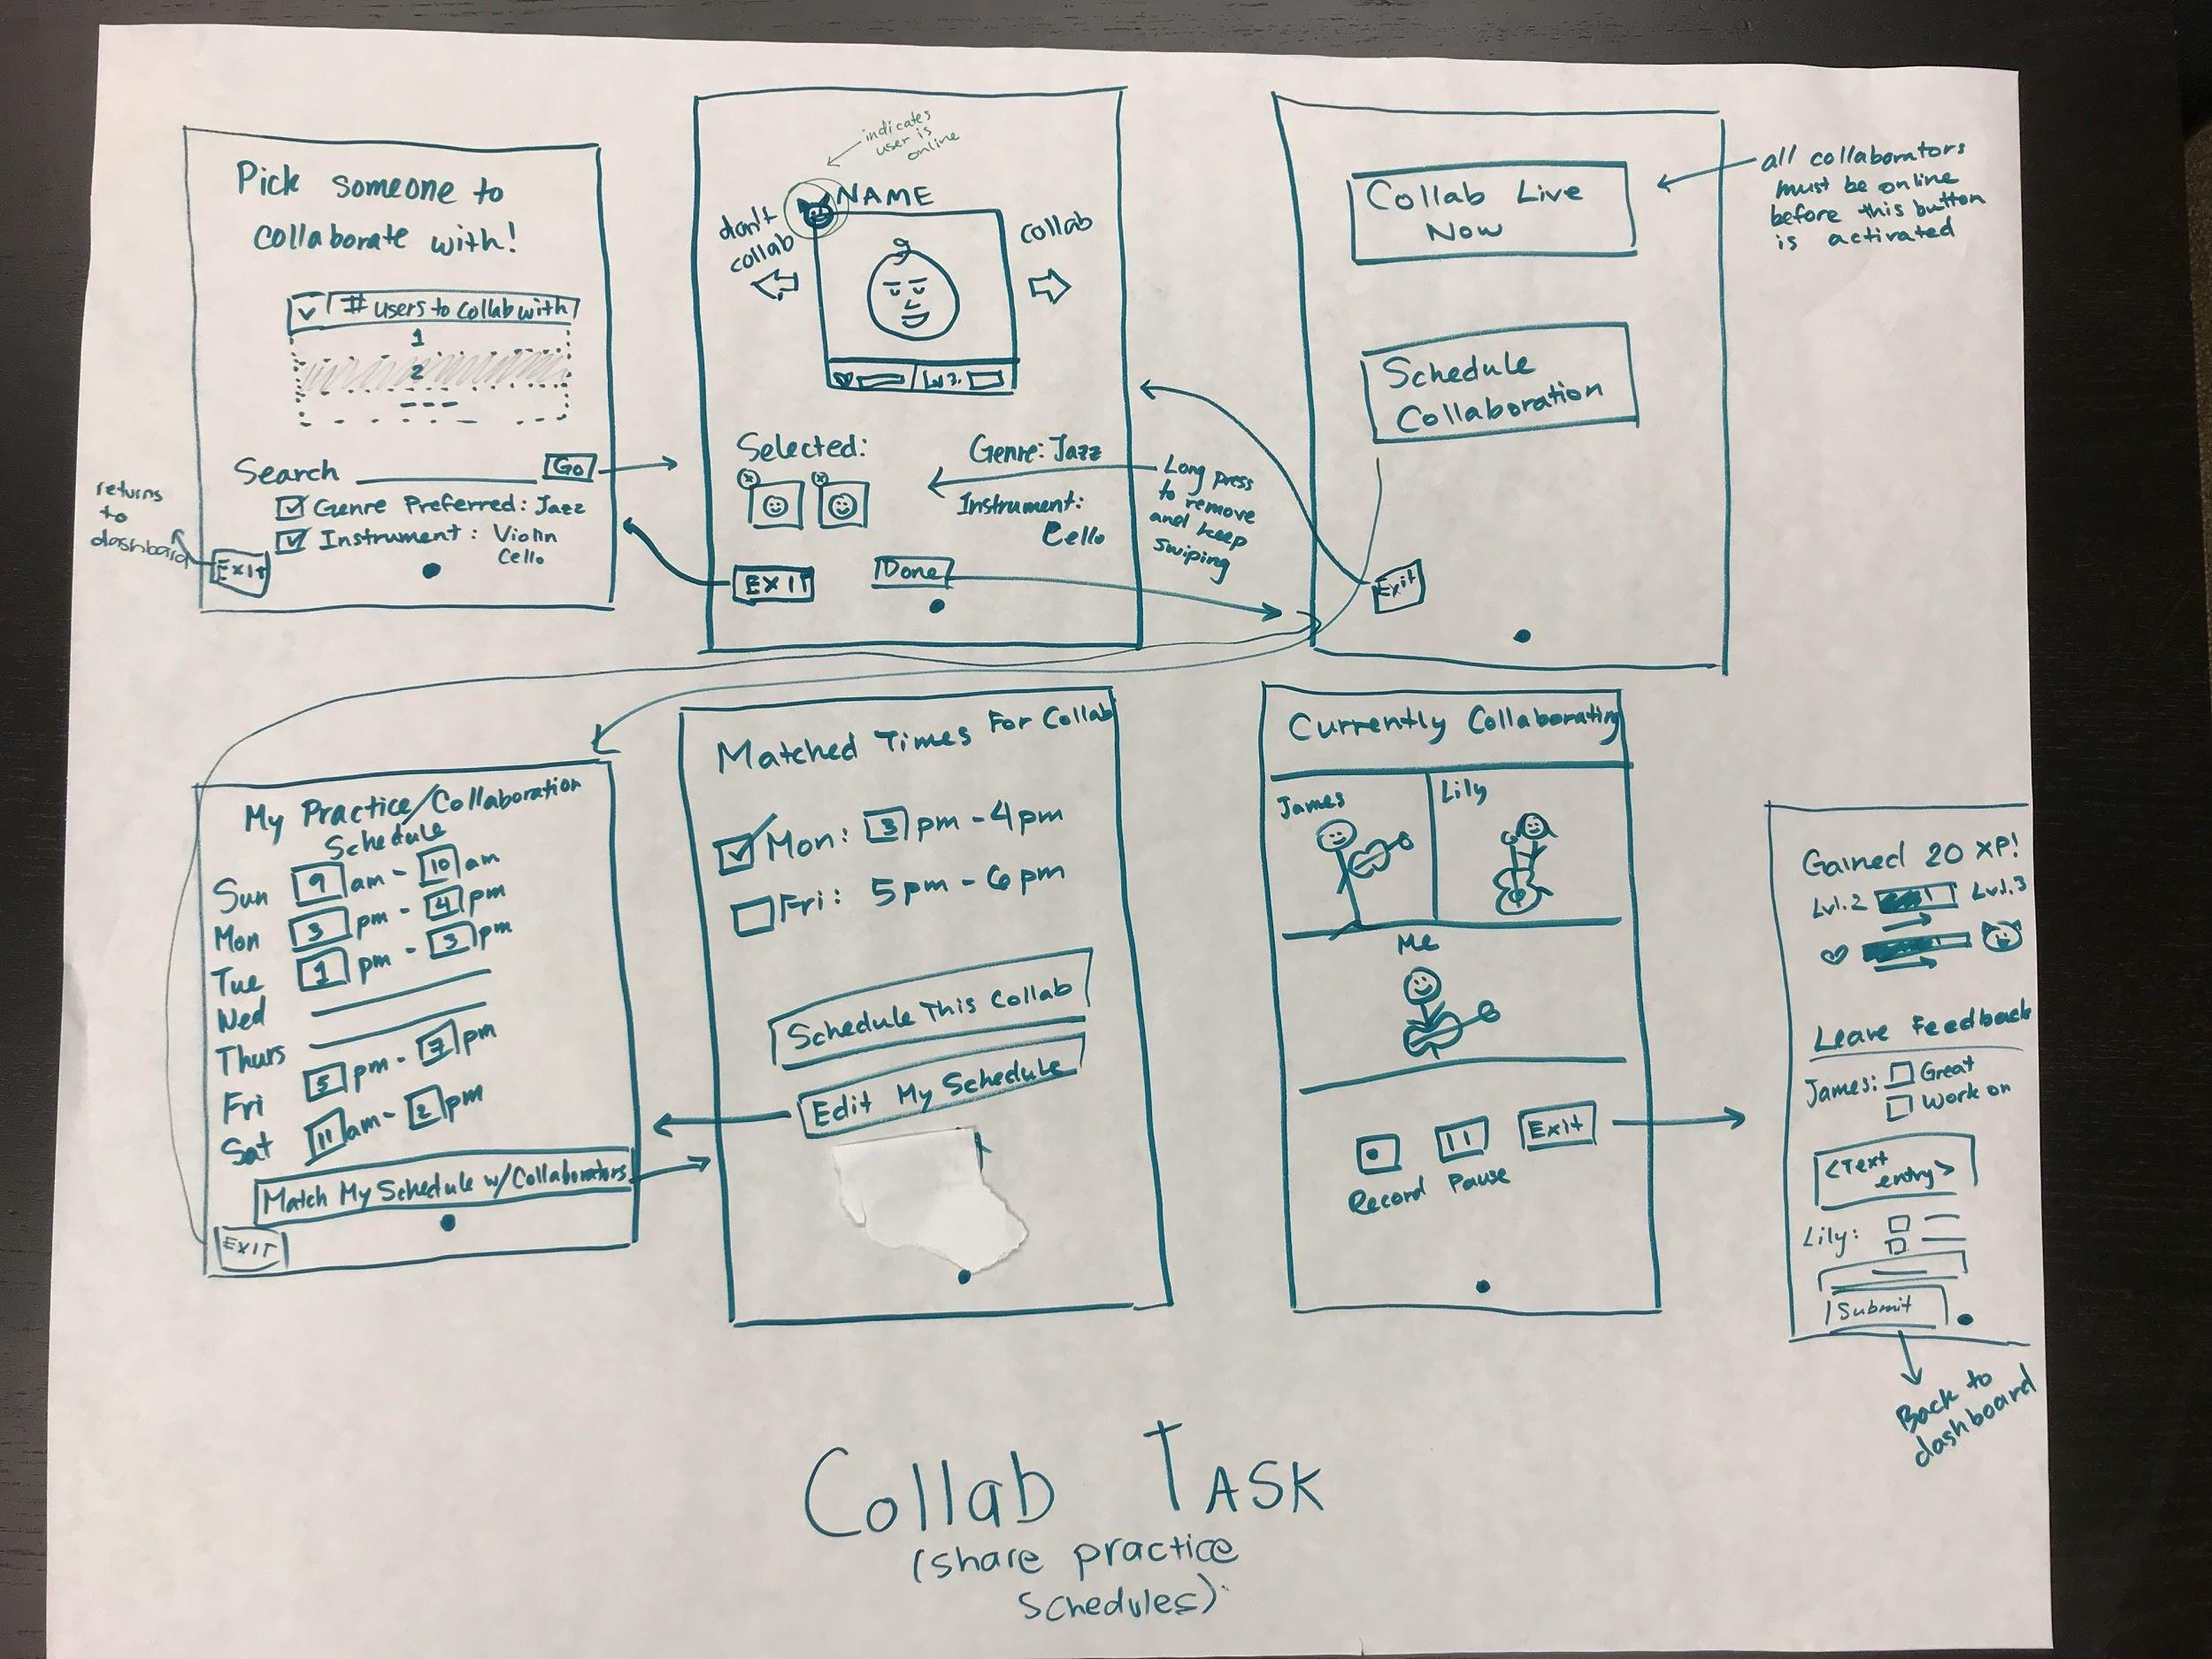 Pick someone to
collaborate with!
# users to collab with
1
2
---
Search
Go
Genre Preferred: Jazz
Instrument: Violin
Cello
EXIT
returns
to
dashboard
indicates
user is
online
NAME
don't
collab
collab
Lvl 2.
Selected:
Genre: Jazz
Instrument:
Cello
EXIT
Done
Long press
to remove
and keep
swiping
Collab Live
Now
Schedule
Collaboration
Exit
all collaborators
must be online
before this button
is activated
My Practice/Collaboration
Schedule
Sun 9 am - 10 am
Mon 3 pm - 4 pm
Tue 1 pm - 3 pm
Wed
Thurs
Fri 5 pm - 7 pm
Sat 11 am - 2 pm
Match My Schedule w/Collaborators
EXIT
Matched Times For Collab
Mon: 3 pm - 4 pm
Fri: 5 pm - 6 pm
Schedule This Collab
Edit My Schedule
Currently Collaborating
James
Lily
Me
Exit
Record Pause
Gained 20 XP!
Lvl.2 Lvl.3
Leave Feedback
James: Great
Work on
<Text
entry>
Lily:
Submit
Back to
dashboard
Collab Task
(share practice
schedules)